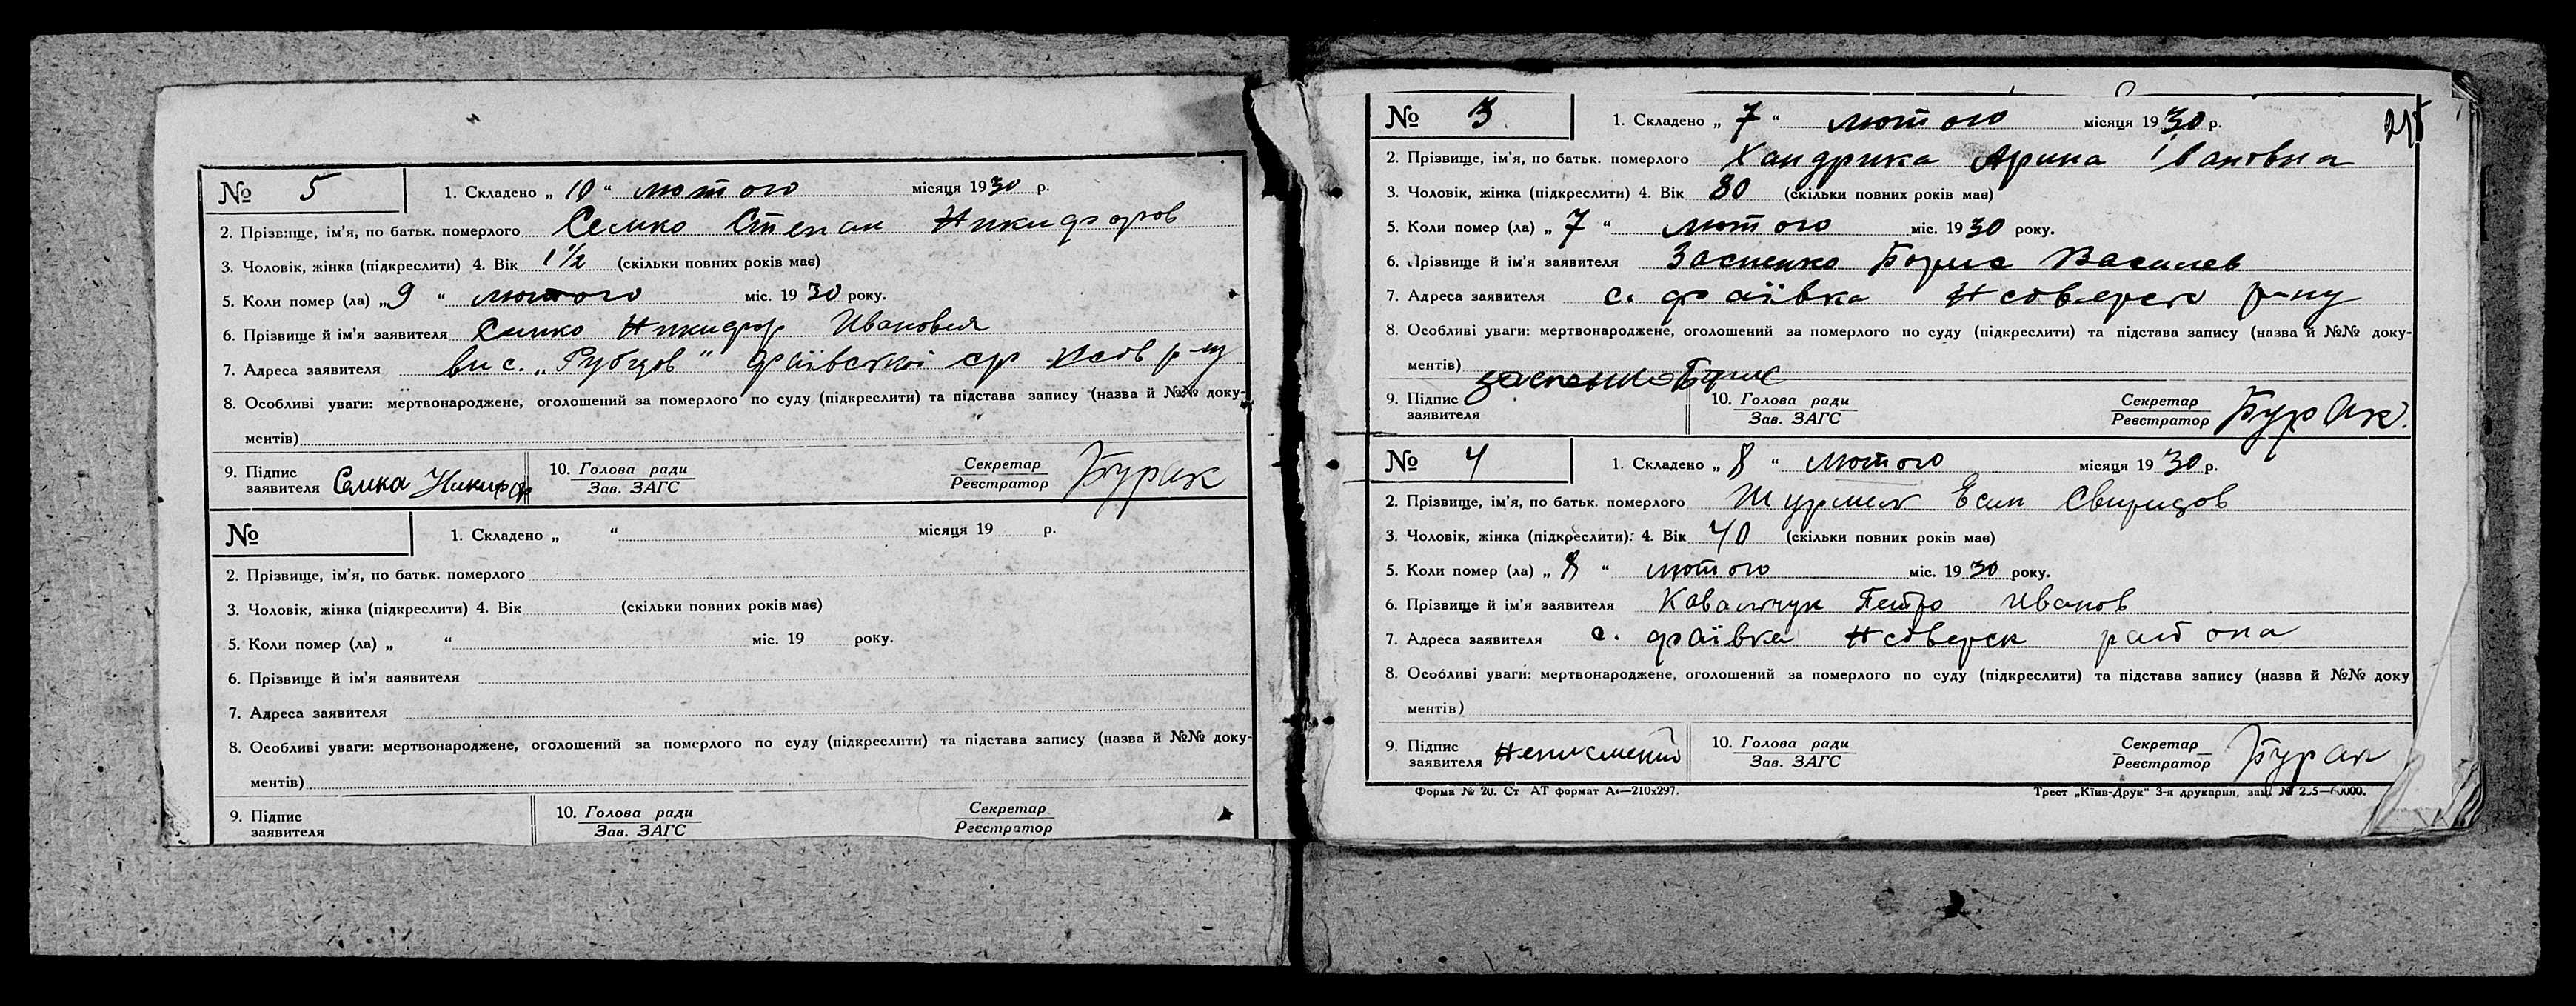 № 5 1. Складено „ 10 “ лютого місяця 1930 р.
2. Прізвище, ім'я, по батьк. померлого Семко Степан Никифоров
3. Чоловік, жінка (підкреслити) 4. Вік 1 1/2 (скільки повних років має)
5. Коли помер (ла) „ 9 “ лютого міс. 1930 року.
6. Прізвище й ім'я заявителя Семко Никифор Иванович
7. Адреса заявителя вис. „Рубцов“ Фаївської ср Нсів р-ну
8. Особливі уваги: мертвонароджене, оголошений за померлого по суду (підкреслити) та підстава запису (назва й №№ доку-
ментів)
9. Підпис заявителя Семка Никифор 10. Голова ради Зав. ЗАГС Секретар Реєстратор Бурак
№ 1. Складено „ “ місяця 19 р.
2. Прізвище, ім'я, по батьк. померлого
3. Чоловік, жінка (підкреслити) 4. Вік (скільки повних років має)
5. Коли помер (ла) „ “ міс. 19 року.
6. Прізвище й ім'я заявителя
7. Адреса заявителя
8. Особливі уваги: мертвонароджене, оголошений за померлого по суду (підкреслити) та підстава запису (назва й №№ доку-
ментів)
9. Підпис заявителя 10. Голова ради Зав. ЗАГС Секретар Реєстратор
№ 3 1. Складено „ 7 “ лютого місяця 1930 р.
2. Прізвище, ім'я, по батьк. померлого Хандрика Арина Івановна
3. Чоловік, жінка (підкреслити) 4. Вік 80 (скільки повних років має)
5. Коли помер (ла) „ 7 “ лютого міс. 1930 року.
6. Прізвище й ім'я заявителя Заспенко Борис Василев
7. Адреса заявителя с. Фаївка Нсіверск р-ну
8. Особливі уваги: мертвонароджене, оголошений за померлого по суду (підкреслити) та підстава запису (назва й №№ доку-
ментів)
9. Підпис заявителя Заспенко Борис 10. Голова ради Зав. ЗАГС Секретар Реєстратор Бурак.
№ 4 1. Складено „ 8 “ лютого місяця 1930 р.
2. Прізвище, ім'я, по батьк. померлого Есип Свиридов
3. Чоловік, жінка (підкреслити). 4. Вік 40 (скільки повних років має)
5. Коли помер (ла) „ 8 “ лютого міс. 1930 року.
6. Прізвище й ім'я заявителя Ковальчук Петро Иванов
7. Адреса заявителя с. Фаївка Нсіверск района
8. Особливі уваги: мертвонароджене, оголошений за померлого по суду (підкреслити) та підстава запису (назва й №№ доку
ментів)
9. Підпис заявителя Неписмений 10. Голова ради Зав. ЗАГС Секретар Реєстратор Бурак
Форма № 20. Ст АТ формат А4—210х297. Трест „Київ-Друк“ 3-я друкарня, зам.